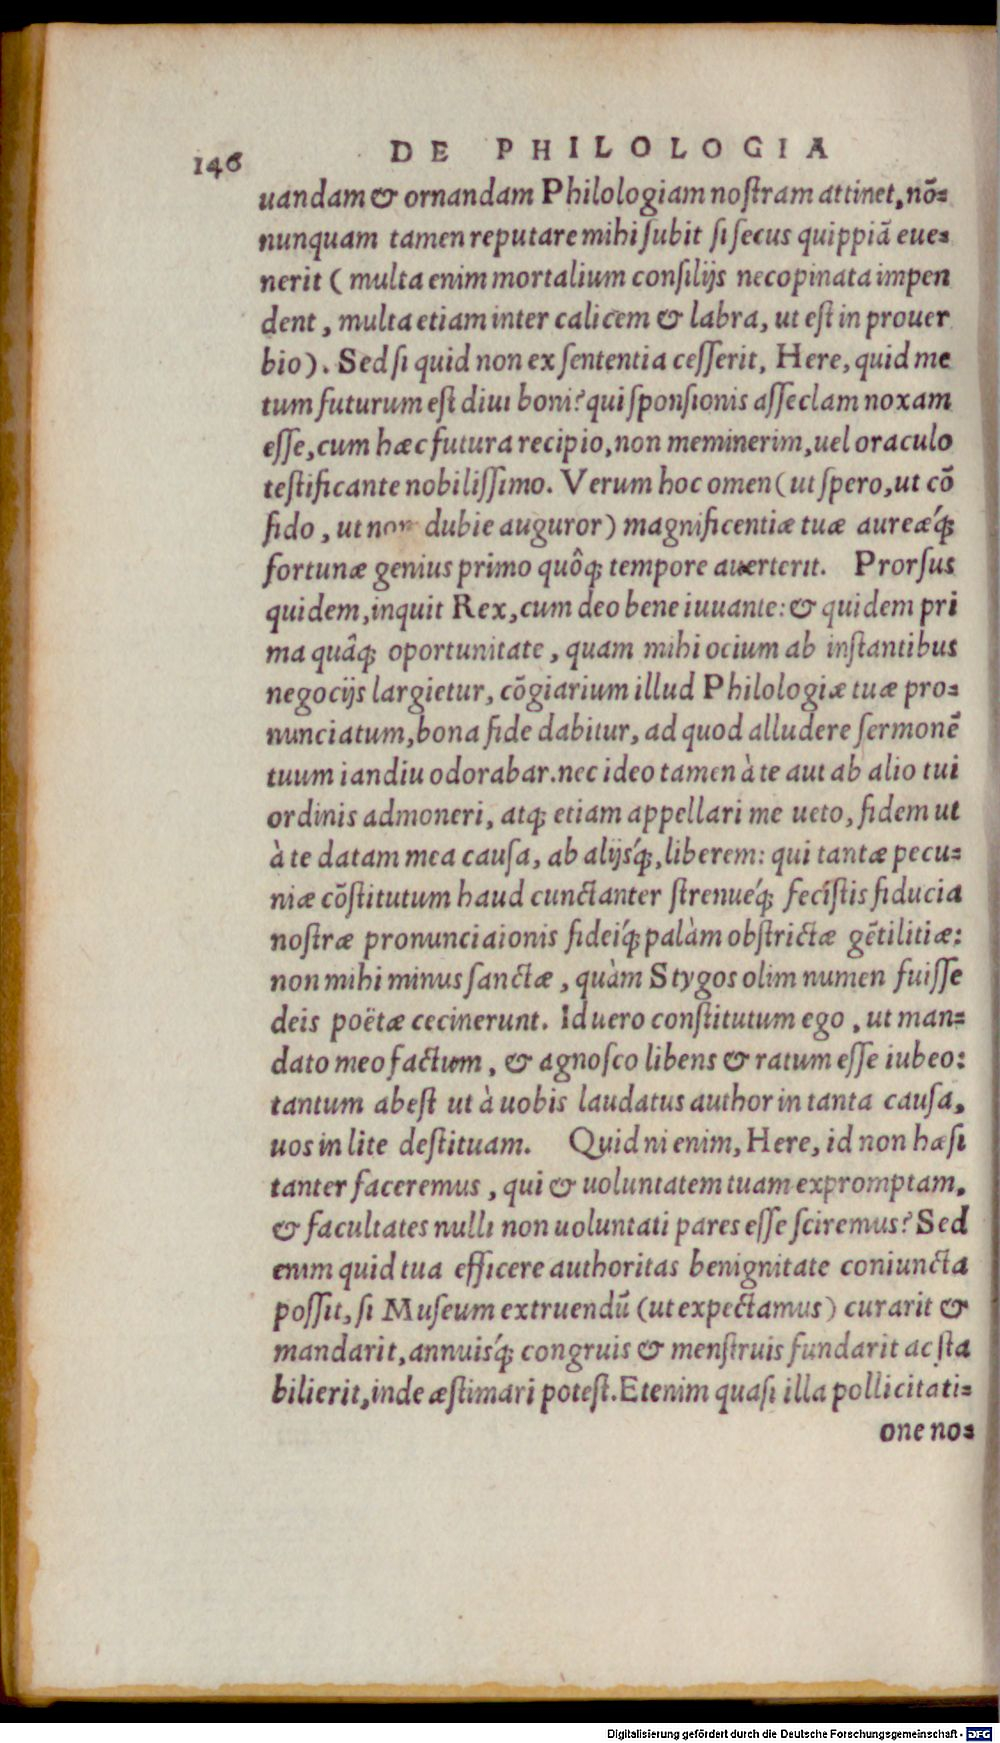 146
DE PHILOLOGIA
uandam & ornandam Philologiam noſtram attinet, nō⸗
nunquam tamen reputare mihi ſubit ſi ſecus quippiā eue⸗
nerit ( multa enim mortalium conſilijs necopinata impen
dent, multa etiam inter calicem & labra, ut eſt in prouer
bio). Sed ſi quid non ex ſententia ceſſerit, Here, quid me
tum futurum eſt diui boni? qui ſponſionis aſſeclam noxam
eſſe, cum hæc futura recipio, non meminerim, uel oraculo
teſtificante nobiliſſimo. Verum hoc omen (ut ſpero, ut cō
fido, ut non dubie auguror) magnificentiæ tuæ aureæq́;
fortunæ genius primo quôq; tempore auerterit. Prorſus
quidem, inquit Rex, cum deo bene iuuante: & quidem pri
ma quâq; oportunitate, quam mihi ocium ab inſtantibus
negocijs largietur, cōgiarium illud Philologiæ tuæ pro⸗
nunciatum, bona fide dabitur, ad quod alludere ſermonē
tuum iandiu odorabar. nec ideo tamen à te aut ab alio tui
ordinis admoneri, atq; etiam appellari me ueto, fidem ut
à te datam mea cauſa, ab alijsq́;, liberem: qui tantæ pecu⸗
niæ cōſtitutum haud cunctanter ſtrenueq́; feciſtis fiducia
noſtræ pronunciaionis fideiq́; palàm obſtrictæ gētilitiæ:
non mihi minus ſanctæ, quàm Stygos olim numen fuiſſe
deis poëtæ cecinerunt. Id uero conſtitutum ego, ut man⸗
dato meo factum, & agnoſco libens & ratum eſſe iubeo:
tantum abeſt ut à uobis laudatus author in tanta cauſa,
uos in lite deſtituam. Quid ni enim, Here, id non hæſi
tanter faceremus, qui & uoluntatem tuam expromptam,
& facultates nulli non uoluntati pares eſſe ſciremus? Sed
enim quid tua efficere authoritas benignitate coniuncta
poſſit, ſi Muſeum extruendū (ut expectamus) curarit &
mandarit, annuisq́; congruis & menſtruis fundarit ac ſta
bilierit, inde æſtimari poteſt. Etenim quaſi illa pollicitati⸗
one no⸗
Digitalisierung gefördert durch die Deutsche Forschungsgemeinschaft - DFG